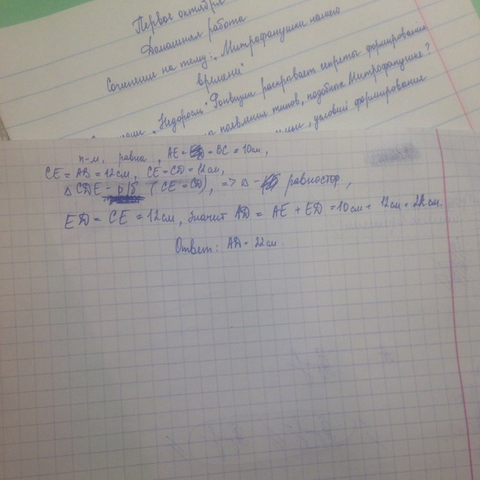 Первое октября
Домашняя работа
Сочинение на тему: "Митрофанушки нашего
времени"
"Недоросль" Фонвизин раскрывает секреты формирования
появления типов, подобных Митрофанушке?
условий формирования
п-м, равна, AE = BC = 10см,
CE = AB = 12см, CE = CD = 12см,
△ CDE - р/б (CE = CD), => △ - равностор,
ED = CE = 12см, значит AD = AE + ED = 10см + 12см = 22 см.
Ответ: AD = 22см